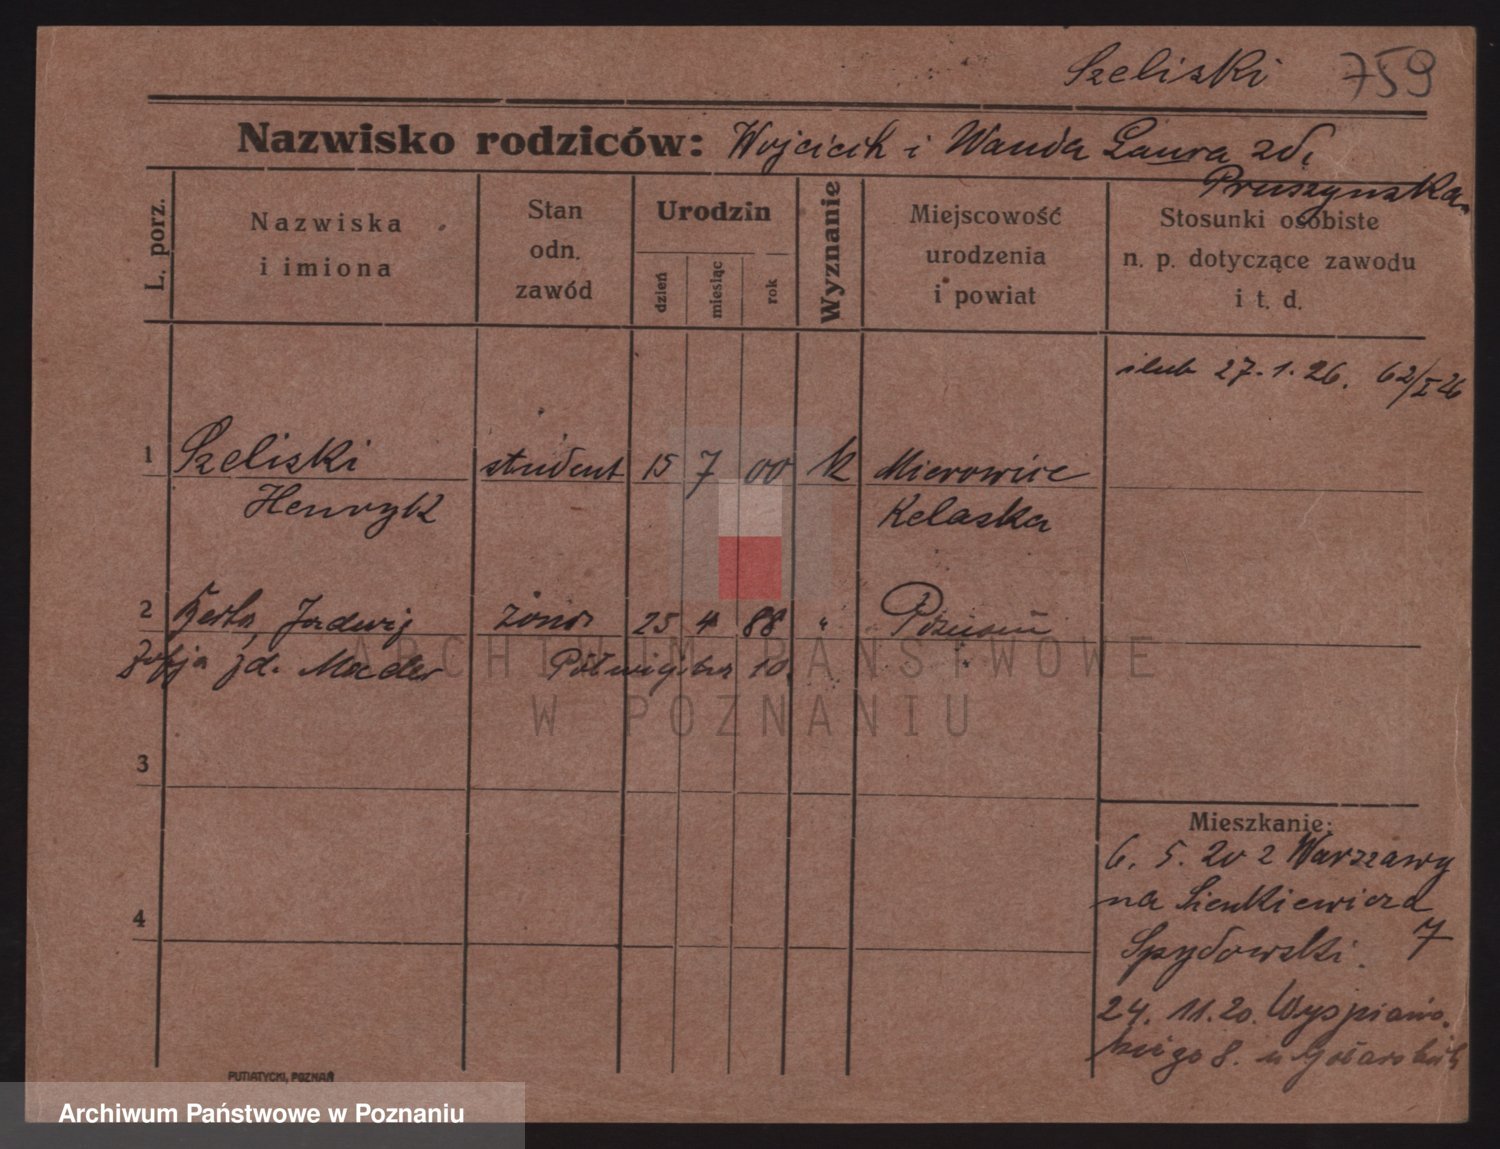 Szeliski 759
Nazwisko rodziców: Wojciech i Wanda Laura zd.
Pruszyńska.
L. porz.
Nazwiska
i imiona
Stan
odn.
zawód
Urodzin
dzień
miesiąc
rok
Wyznanie
Miejscowość
urodzenia
i powiat
Stosunki osobiste
n. p. dotyczące zawodu
i t. d.
ślub 27.1.26. 62/I 26
1 Szeliski student 15 7 00 k Mierowice
Henryk Kelaska
2 Jadwig żona 25 4 88 " Poznań
Zofja zd. Mader Półwiejska 10.
ARCHIWUM PAŃSTWOWE
W POZNANIU
3
4
Mieszkanie:
6. 5. 20 z Warszawy
na Sienkiewicza
7
Spydowski.
24. 11. 20. Wyspiańs-
kiego 8. u
PUTIATYCKI, POZNAŃ
Archiwum Państwowe w Poznaniu